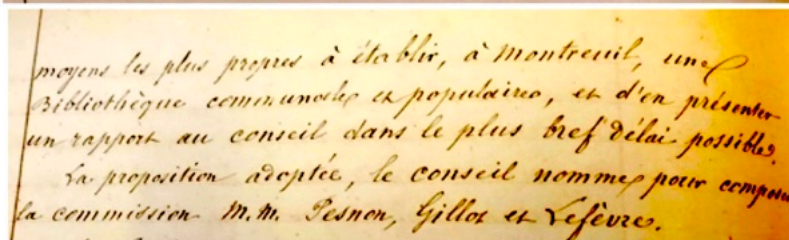 moyens les plus propres à établir, à Montreuil, une
Bibliothèque communale et populaire, et d'en présenter
un rapport au conseil dans le plus bref délai possible.
La proposition adoptée, le conseil nomme pour composer
la commission M.M. Pesnon, Gillot et Lefèvre.